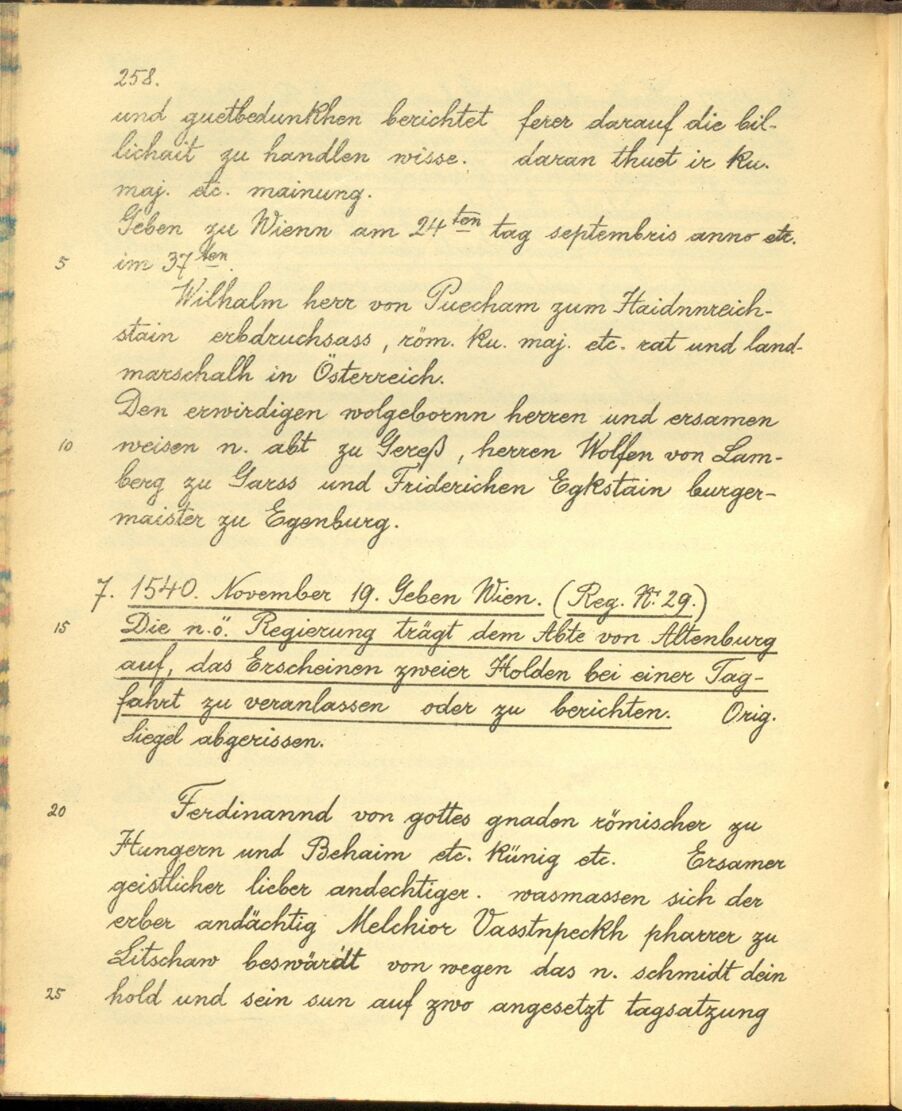 258.
und guetbedunkhen berichtet ferer darauf die bil-
lichait zu handlen wisse. daran thuet ir ku.
maj. etc. mainung.
Geben zu Wienn am 24ten tag septembris anno etc.
5 im 37ten.
Wilhalm herr von Puecham zum Haidnnreich-
stain erbdruchsass, röm. ku. maj. etc. rat und land-
marschalh in Österreich.
Den erwirdigen wolgebornn herren und ersamen
10 weisen n. abt zu Gereß, herren Wolfen von Lam-
berg zu Garss und Friderichen Egkstain burger-
maister zu Egenburg.
7. 1540. November 19. Geben Wien. (Reg. N. 29.)
15 Die n.ö. Regierung trägt dem Abte von Altenburg
auf, das Erscheinen zweier Holden bei einer Tag-
fahrt zu veranlassen oder zu berichten. Orig.
Siegel abgerissen.
20 Ferdinannd von gottes gnaden römischer zu
Hungern und Behaim etc. künig etc. Ersamer
geistlicher lieber andechtiger. wasmassen sich der
erber andächtig Melchior Vasstnpeckh pharrer zu
Litschaw beswärdt von wegen das n. schmidt dein
25 hold und sein sun auf zwo angesetzt tagsatzung